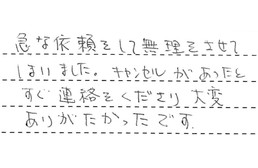 急な依頼をして無理をさせて
しまいました。キャンセルがあったと
すぐ連絡をくださり大変
ありがたかったです.